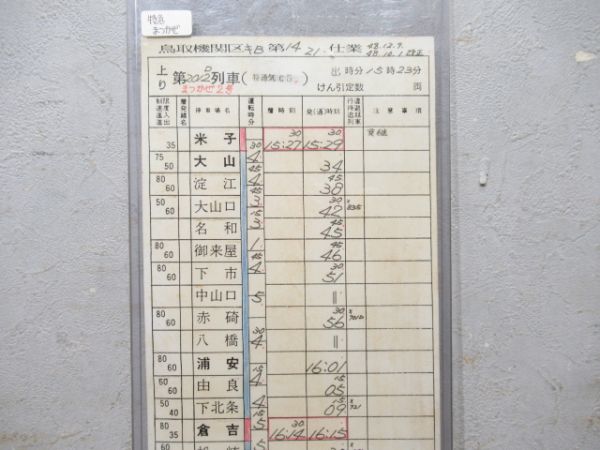 特急
まつかぜ
鳥取機関区 キB 第14 21.仕業
48.12.7.
48.10.1 改正
上り 第2012D列車
まつかぜ2号
出 時分 15時23分
けん引定数 両
停車場名 運転時分 着時刻 発(通)時刻 注意事項
35 米子 30 15:27 30 15:29
75 50 大山 4 34
80 60 淀江 4 45 38
50 60 大山口 3 30 42
名和 3 45 45
80 60 御来屋 1 45 46
80 60 下市 4 30 51
中山口 5 ||
80 60 赤碕 30 56
八橋 4 ||
80 60 浦安 16:01
50 60 由良 4 15 05
50 40 下北条 4 15 09
80 35 倉吉 5 30 16:14 16:15
5